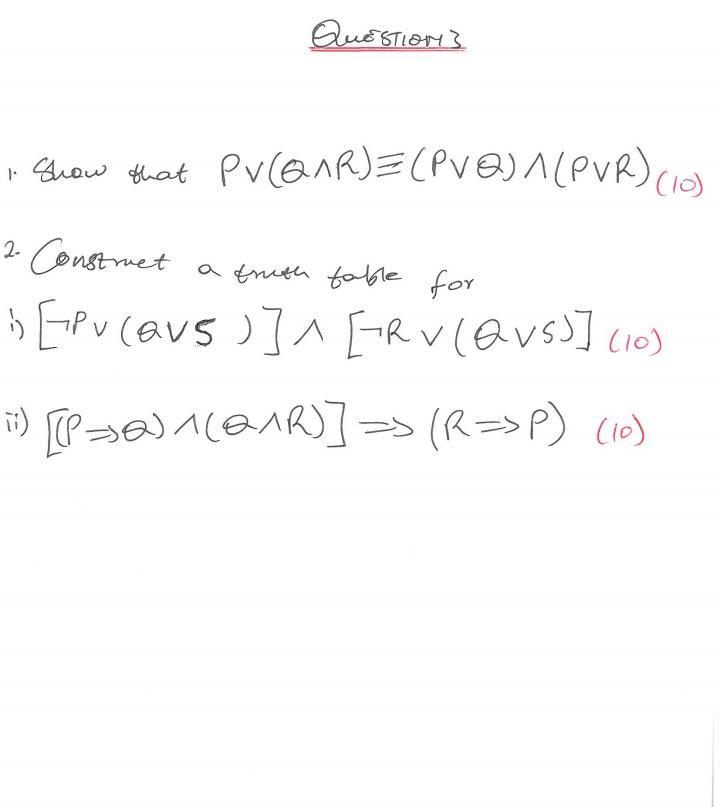 QUESTION 3
1. Show that P∨(Q∧R)≡(P∨Q)∧(P∨R) (10)
2. Construct a truth table for
i) [¬P∨(Q∨S)]∧[¬R∨(Q∨S)] (10)
ii) [(P⇒Q)∧(Q∧R)]⇒(R⇒P) (10)